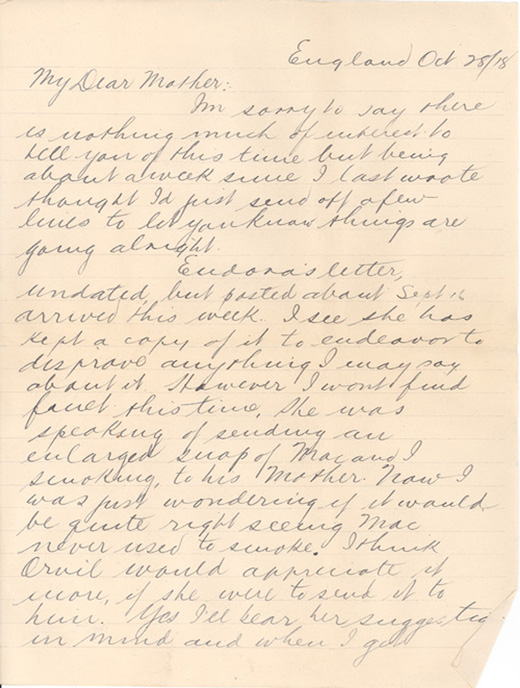 England Oct 28/18
My Dear Mother:
I'm sorry to say there
is nothing much of interest to
tell you of this time but being
about a week since I last wrote
thought I'd just send off a few
lines to let you know things are
going alright.
Eudora's letter,
undated, but posted about Sept 12
arrived this week. I see she has
kept a copy of it to endeavor to
disprove anything I may say
about it. However I wont find
fault this time. She was
speaking of sending an
enlarged snap of Mac and I
smoking, to his Mother. Now I
was just wondering if it would
be quite right seeing Mac
never used to smoke. I think
Orvil would appreciate it
more, if she were to send it to
him. Yes I'll bear her suggestion
in mind and when I get